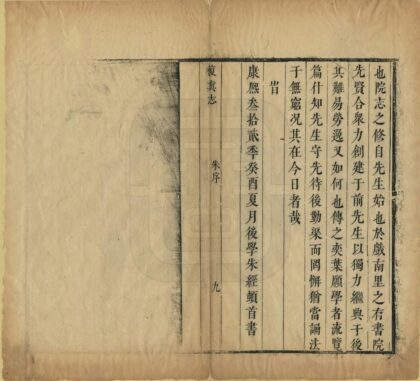 也院志之修自先生始也於戲南里之有書院
先賢合衆力創建于前先生以獨力繼興于後
其難易勞逸又如何也傳之奕葉願學者流覽
篇什知先生守先待後勤渠而罔懈猶當誦法
于無窮况其在今日者哉
旹
康熙叁拾貳季癸酉夏月後學朱經頓首書
復真志
朱序
九